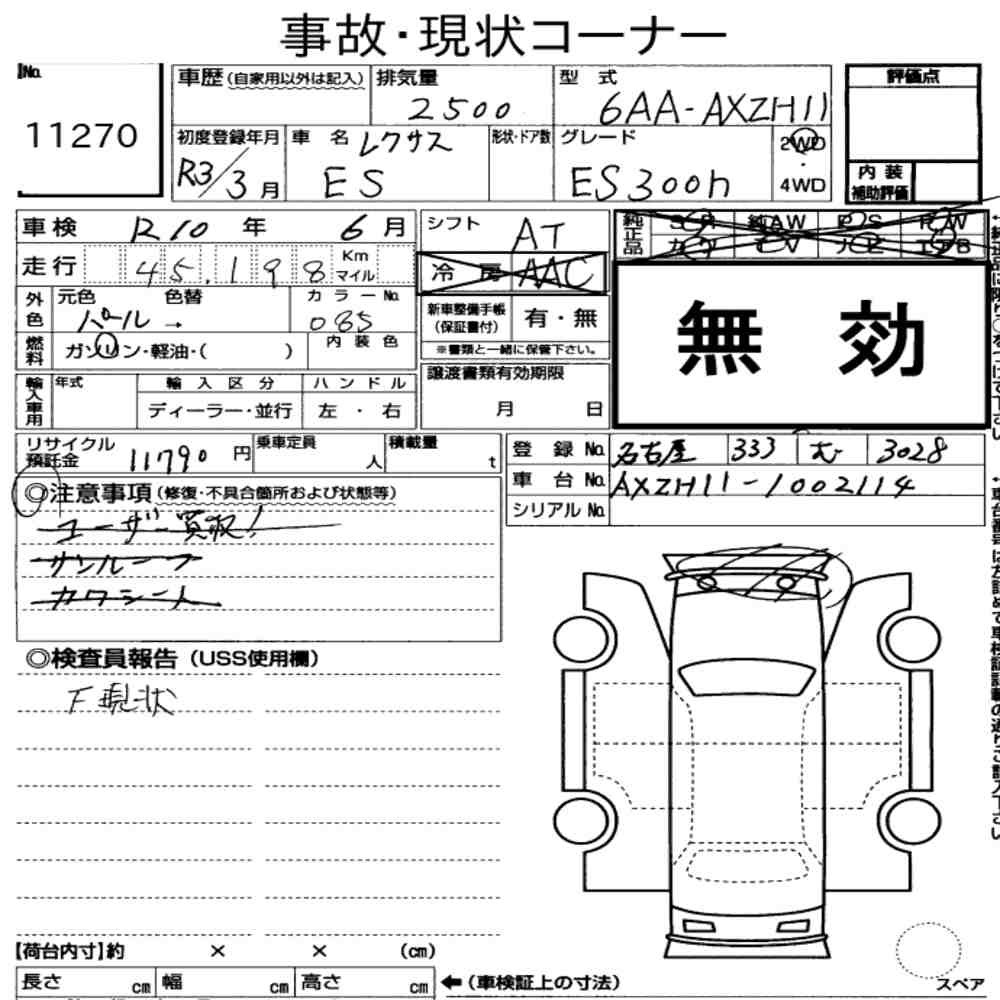 事故・現状コーナー
No.
11270
車歴(自家用以外は記入)
排気量
2500
型 式
6AA-AXZH11
評価点
初度登録年月
R3/3月
車 名 レクサス
ES
形状・ドア数
グレード
ES300h
2WD
・
4WD
内 装
補助評価
車検 R10 年 6 月
シフト
AT
純正品
S R 純AW P S P W
カワ T V ナビ エアB
走行 45,198 Km
マイル
冷 房 AAC
外色
元色 色替
パール →
カラーNo.
085
新車整備手帳
(保証書付)
有・無
※書類と一緒に保管下さい。
無 効
燃料
ガソリン・軽油・( )
内 装 色
輸入車用
年式
輸 入 区 分
ディーラー・並行
ハ ン ド ル
左 ・右
譲渡書類有効期限
月 日
リサイクル
預託金 11790 円
乗車定員
人
積載量
t
登 録 No. 名古屋 333 む 3028
車 台 No. AXZH11-1002114
シリアル No.
◎注意事項(修復・不具合箇所および状態等)
ユーザー買取!
サンルーフ
カワシート
◎検査員報告(USS使用欄)
下現状
【荷台内寸】約 × × (cm)
長さ cm 幅 cm 高さ cm
←(車検証上の寸法)
スペア